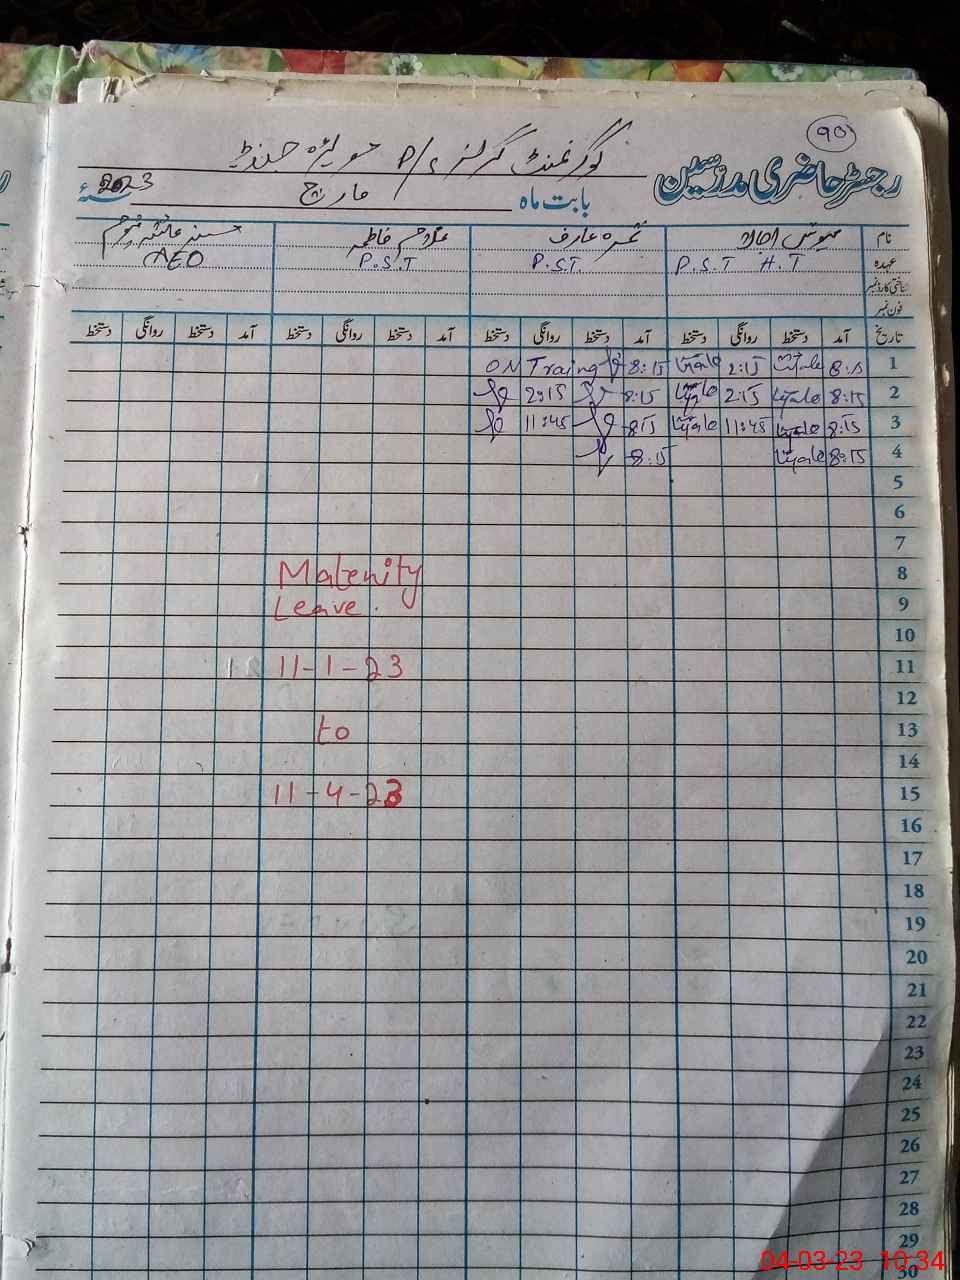 90
گورنمنٹ گرلز P/S
رجسٹر حاضری مدرسین
بابت ماہ مارچ 2023 سنۂ
نام ثمرہ عارف فاطمہ عائشہ
عہدہ P.S.T H.T P.S.T. P.S.T AEO
شناختی کارڈ نمبر
فون نمبر
تاریخ آمد دستخط روانگی دستخط آمد دستخط روانگی دستخط آمد دستخط روانگی دستخط آمد دستخط روانگی دستخط
1 8:15 8:15 ON Traing
2 8:15 2:15 8:15 2:15
3 8:15 11:45 8:15 11:45
4 8:15 8:15
5
6
7
8 Maternity
9 Leave.
10
11 11-1-23
12
13 to
14
15 11-4-23
16
17
18
19
20
21
22
23
24
25
26
27
28
29
30
04-03-23 10:34